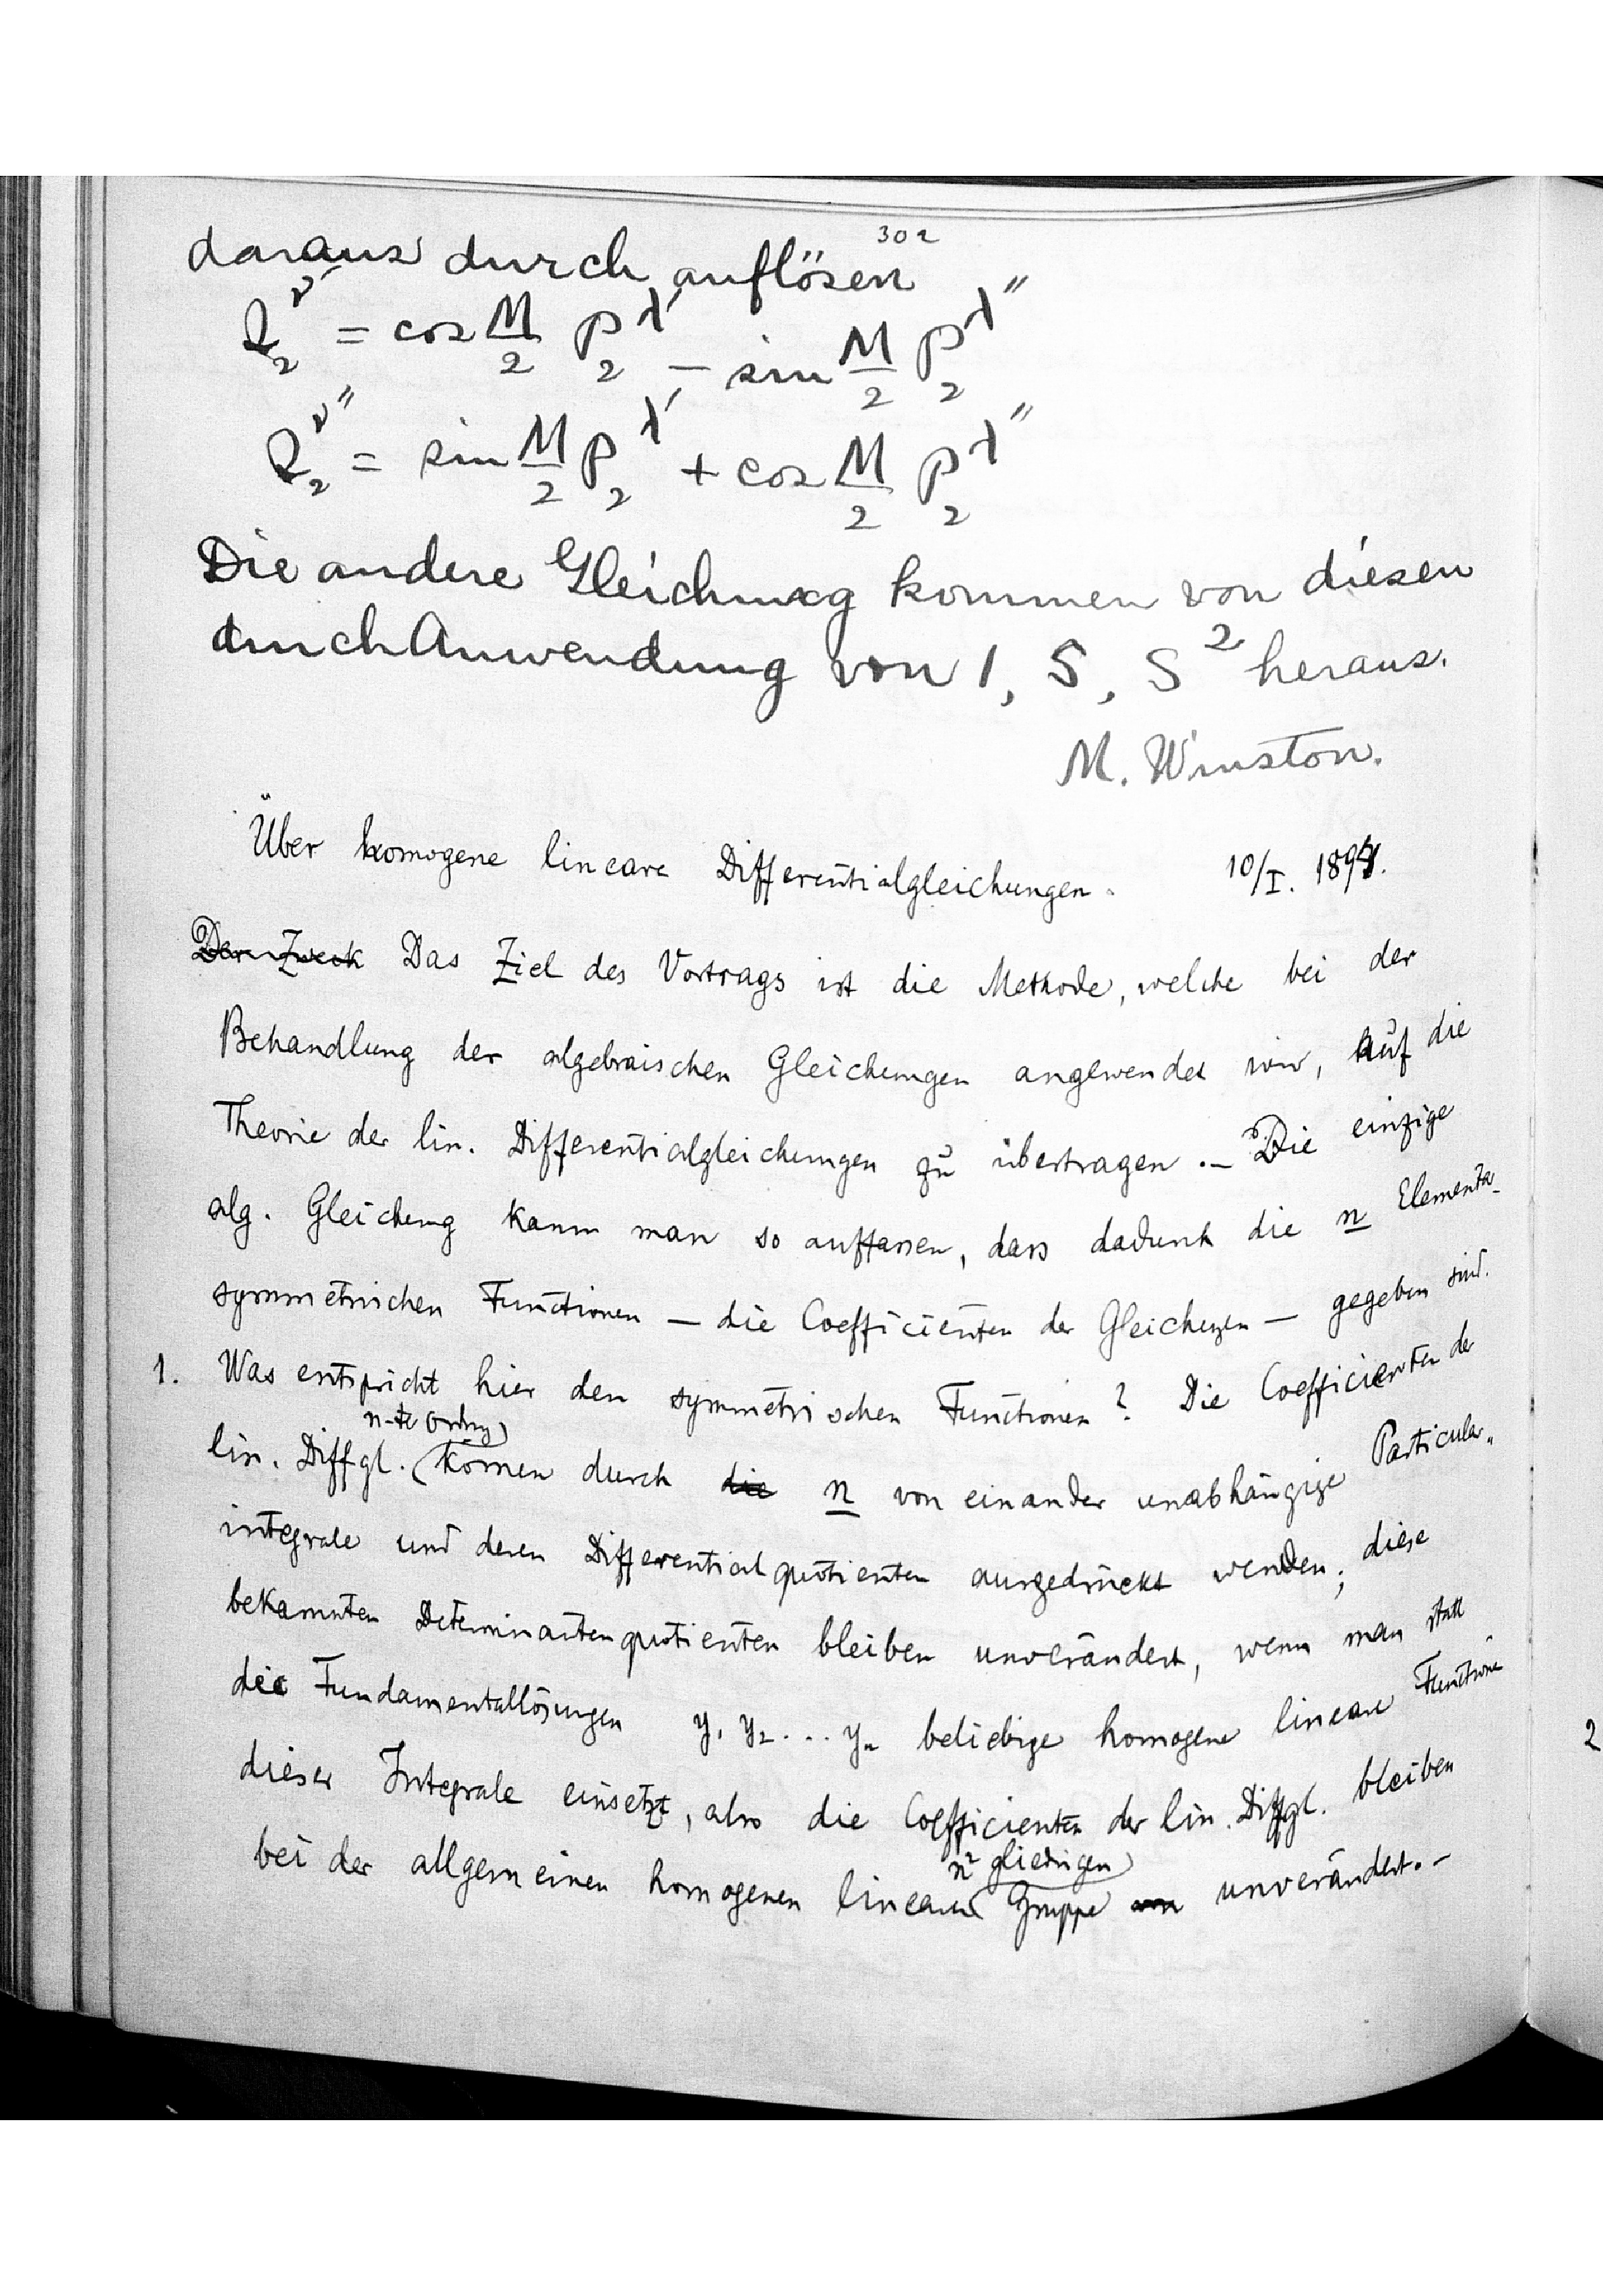 302
daraus durch auflösen
Q₂^ν' = cos M/2 P₂^λ' − sin M/2 P₂^λ''
Q₂^ν'' = sin M/2 P₂^λ' + cos M/2 P₂^λ''
Die andere Gleichung kommen von diesen
durch Anwendung von 1, S, S² heraus.
M. Winston.
Über homogene lineare Differentialgleichungen. 10/I. 1894.
Der Zweck Das Ziel des Vortrags ist die Methode, welche bei der
Behandlung der algebraischen Gleichungen angewendet wird, auf die
Theorie der lin. Differentialgleichungen zu übertragen. — Die einzige
alg. Gleichung kann man so auffassen, dass dadurch die n Elementar-
symmetrischen Functionen — die Coefficienten der Gleichungen — gegeben sind.
1. Was entspricht hier den symmetrischen Functionen? Die Coefficienten der
n-te Ordng
lin. Diffgl. (können durch die n von einander unabhängige Particular-
integrale und deren Differentialquotienten ausgedrückt werden; diese
bekannten Determinantenquotienten bleiben unverändert, wenn man statt
die Fundamentallösungen y₁ y₂ ... yₙ beliebige homogene lineare Functione
dieser Integrale einsetzt, also die Coefficienten der lin. Diffgl. bleiben
n² gliedrigen
bei der allgemeinen homogenen linearen Gruppe von unverändert. —
2